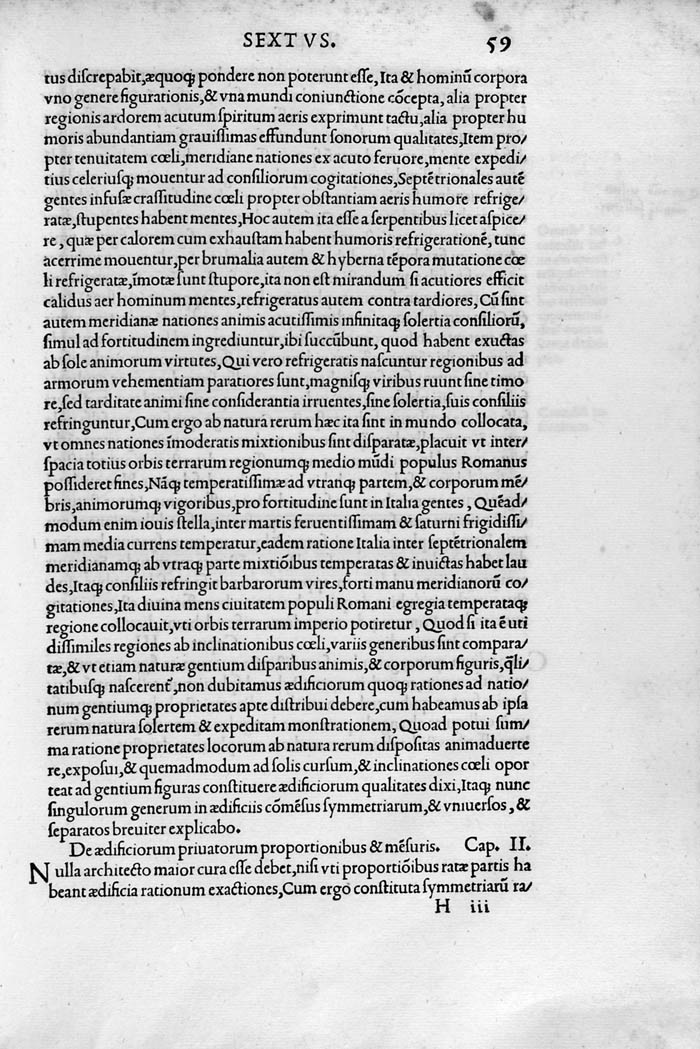 SEXTVS. 59
tus discrepabit,æquoqꝫ pondere non poterunt esse,Ita & hominū corpora
vno genere figurationis,& vna mundi coniunctione cōcepta, alia propter
regionis ardorem acutum spiritum aeris exprimunt tactu,alia propter hu
moris abundantiam grauissimas effundunt sonorum qualitates,Item pro/
pter tenuitatem cœli,meridiane nationes ex acuto feruore,mente expedi/
tius celeriusqꝫ mouentur ad consiliorum cogitationes,Septētrionales autē
gentes infusæ crassitudine cœli propter obstantiam aeris humore refrige/
ratæ,stupentes habent mentes,Hoc autem ita esse a serpentibus licet aspice/
re, quæ per calorem cum exhaustam habent humoris refrigerationē, tunc
acerrime mouentur,per brumalia autem & hyberna tēpora mutatione cœ
li refrigeratæ,īmotæ sunt stupore,ita non est mirandum si acutiores efficit
calidus aer hominum mentes,refrigeratus autem contra tardiores,Cū sint
autem meridianæ nationes animis acutissimis infinitaqꝫ solertia consiliorū,
simul ad fortitudinem ingrediuntur,ibi succūbunt, quod habent exuctas
ab sole animorum virtutes,Qui vero refrigeratis nascuntur regionibus ad
armorum vehementiam paratiores sunt,magnisqꝫ viribus ruunt sine timo
re,sed tarditate animi sine considerantia irruentes,sine solertia,suis consiliis
refringuntur,Cum ergo ab natura rerum hæc ita sint in mundo collocata,
vt omnes nationes īmoderatis mixtionibus sint disparatæ,placuit vt inter/
spacia totius orbis terrarum regionumqꝫ medio mūdi populus Romanus
possideret fines,Nāqꝫ temperatissimæ ad vtranqꝫ partem,& corporum mē/
bris,animorumqꝫ vigoribus,pro fortitudine sunt in Italia gentes, Quēad/
modum enim iouis stella,inter martis feruentissimam & saturni frigidissi/
mam media currens temperatur,eadem ratione Italia inter septētrionalem
meridianamqꝫ ab vtraqꝫ parte mixtiōibus temperatas & inuictas habet lau
des,Itaqꝫ consiliis refringit barbarorum vires,forti manu meridianorū co/
gitationes,Ita diuina mens ciuitatem populi Romani egregia temperataqꝫ
regione collocauit,vti orbis terrarum imperio potiretur, Quod si ita ē uti
dissimiles regiones ab inclinationibus cœli,variis generibus sint compara/
tæ,& vt etiam naturæ gentium disparibus animis,& corporum figuris,q̄li/
tatibusqꝫ nascerent᷑,non dubitamus ædificiorum quoqꝫ rationes ad natio/
num gentiumqꝫ proprietates apte distribui debere,cum habeamus ab ipsa
rerum natura solertem & expeditam monstrationem, Quoad potui sum/
ma ratione proprietates locorum ab natura rerum dispositas animaduerte
re,exposui,& quemadmodum ad solis cursum,& inclinationes cœli opor
teat ad gentium figuras constituere ædificiorum qualitates dixi,Itaqꝫ nunc
singulorum generum in ædificiis cōmēsus symmetriarum,& vniuersos, &
separatos breuiter explicabo.
De ædificiorum priuatorum proportionibus & mēsuris. Cap. II.
Nulla architecto maior cura esse debet,nisi vti proportiōibus ratæ partis ha
beant ædificia rationum exactiones,Cum ergo constituta symmetriarū ra/
H iii